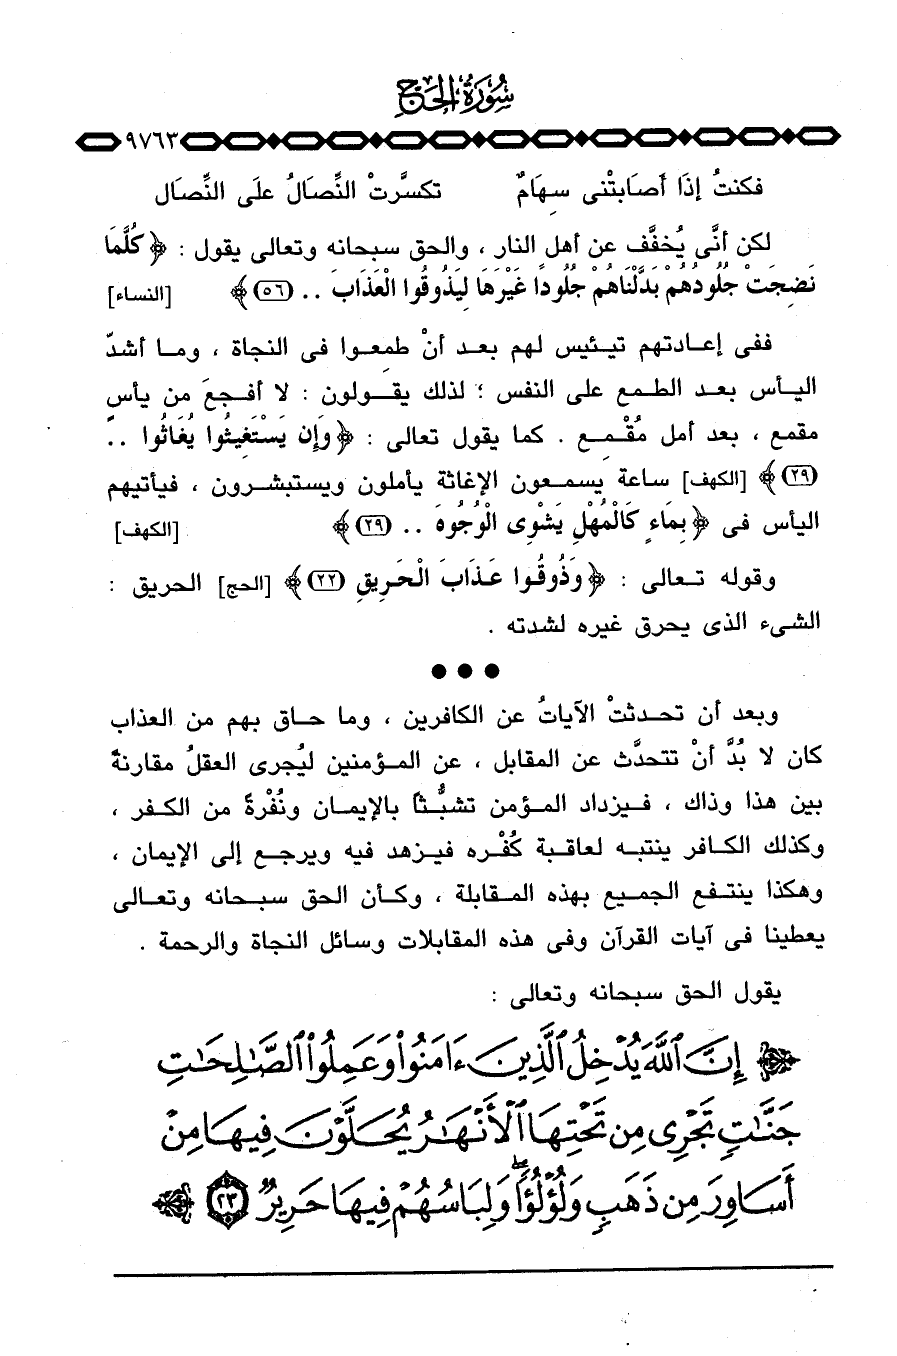 سُورَةُ الحَجِّ
٩٧٦٣
فكنتُ إذَا أصَابتْنى سِهَامٌ تكسَّرتْ النِّصَالُ علَى النِّصَال
لكن أنَّى يُخفَّف عن أهل النار ، والحق سبحانه وتعالى يقول : ﴿ كُلَّمَا
نَضِجَتْ جُلُودُهُمْ بَدَّلْنَاهُمْ جُلُودًا غَيْرَهَا لِيَذُوقُوا الْعَذَابَ .. (٥٦)﴾ [النساء]
ففى إعادتهم تيئيس لهم بعد أنْ طمعوا فى النجاة ، وما أشدّ
اليأس بعد الطمع على النفس ؛ لذلك يقولون : لا أفجعَ من يأسٍ
مقمع ، بعد أمل مُقْمع . كما يقول تعالى : ﴿ وَإِن يَسْتَغِيثُوا يُغَاثُوا ..
(٢٩)﴾ [الكهف] ساعة يسمعون الإغاثة يأملون ويستبشرون ، فيأتيهم
اليأس فى ﴿ بِمَاءٍ كَالْمُهْلِ يَشْوِى الْوُجُوهَ .. (٢٩)﴾ [الكهف]
وقوله تعالى : ﴿ وَذُوقُوا عَذَابَ الْحَرِيقِ (٢٢)﴾ [الحج] الحريق :
الشىء الذى يحرق غيره لشدته .
● ● ●
وبعد أن تحدثتْ الآياتُ عن الكافرين ، وما حاق بهم من العذاب
كان لا بُدَّ أنْ تتحدَّث عن المقابل ، عن المؤمنين ليُجرى العقلُ مقارنةً
بين هذا وذاك ، فيزداد المؤمن تشبُّثاً بالإيمان ونُفْرةً من الكفر ،
وكذلك الكافر ينتبه لعاقبة كُفْره فيزهد فيه ويرجع إلى الإيمان ،
وهكذا ينتفع الجميع بهذه المقابلة ، وكأن الحق سبحانه وتعالى
يعطينا فى آيات القرآن وفى هذه المقابلات وسائل النجاة والرحمة .
يقول الحق سبحانه وتعالى :
﴿ إِنَّ ٱللَّهَ يُدْخِلُ ٱلَّذِينَ ءَامَنُوا۟ وَعَمِلُوا۟ ٱلصَّـٰلِحَـٰتِ
جَنَّـٰتٍ تَجْرِى مِن تَحْتِهَا ٱلْأَنْهَـٰرُ يُحَلَّوْنَ فِيهَا مِنْ
أَسَاوِرَ مِن ذَهَبٍ وَلُؤْلُؤًا ۖ وَلِبَاسُهُمْ فِيهَا حَرِيرٌ (٢٣) ﴾